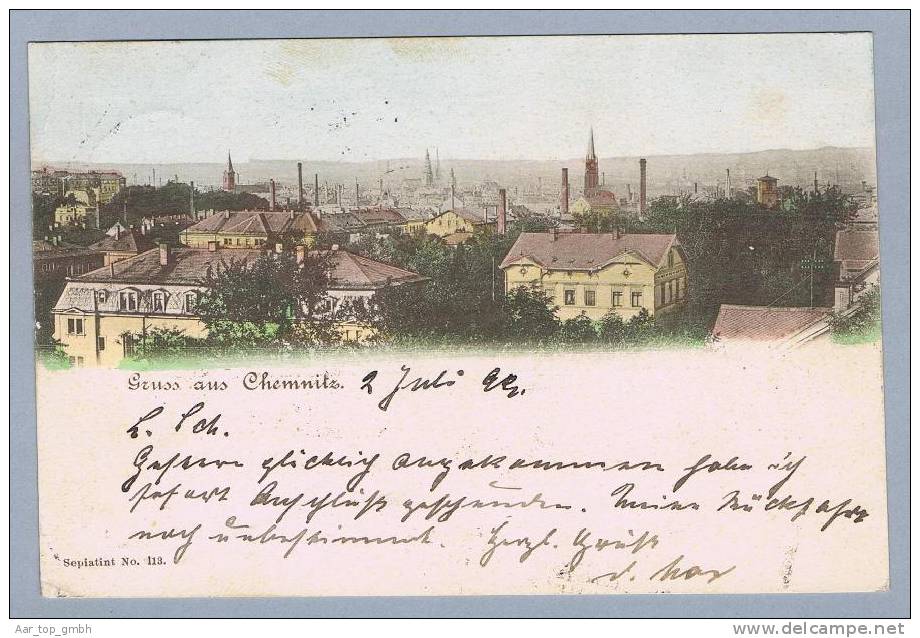 Gruss aus Chemnitz. 2 Juli 98.
L. Sch.
Gestern glücklich angekommen habe ich
sofort Anschluß gefunden. Meine Rückfahrt
noch unbestimmt. Herzl. Grüße
d. Max
Sepiatint No. 113.
Aar_top_gmbh
www.delcampe.net